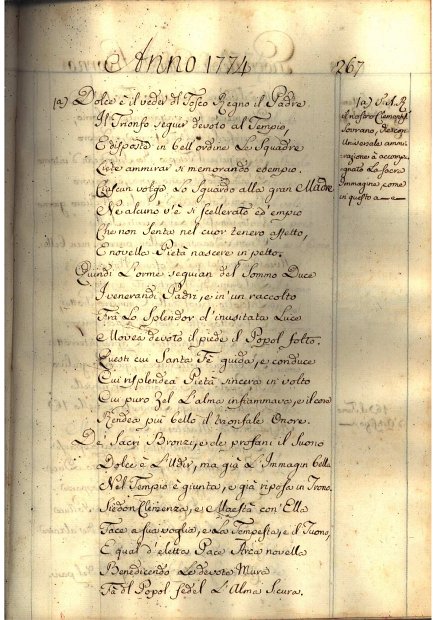 Anno 1774 267
(a) Dolce è il veder dl Tosco Regno il Padre
Il Trionfo seguir devoto al Tempio,
E disposte in bell'ordine Le Squadre
Liete ammirar sì memorando esempio.
Ciascun volge Lo Sguardo alla gran Madre
Ne alcuno v'è sì scellerato ed empio
Che non senta nel cuor tenero affetto,
E novella Pietà nascere in petto.
Quindi L'orme seguian del Sommo Duce
I venerandi Padri, e in un raccolto
Trà Lo Splendor d'inusitata Luce
Movea devoto il piede il Popol folto.
Questi cui Santa Fè guida, e conduce
Cui risplendea Pietà sincera in volto
Cui puro Zel L'alma infiammava, e il core
Rendea più bello il trionfale Onore.
De' Sacri Bronzi, e de' profani il Suono
Dolce è L'Udir, ma già L'Immagin bella
Nel Tempio è giunta, e già riposa in Trono.
Siedon Clemenza, e Maestà con Ella
Tace a sua voglia, e La Tempesta, e il Tuono,
E qual d'eletta Pace Arca novella
Benedicendo Le devote Mura
Fà dl Popol fedel L'Alma Sicura.
(a) S. A. R.
il nostro Clementis.
Sovrano, che con
Universale ammi-
razione à accompa-
gnato La Sacra
Immagine, come
in questo a